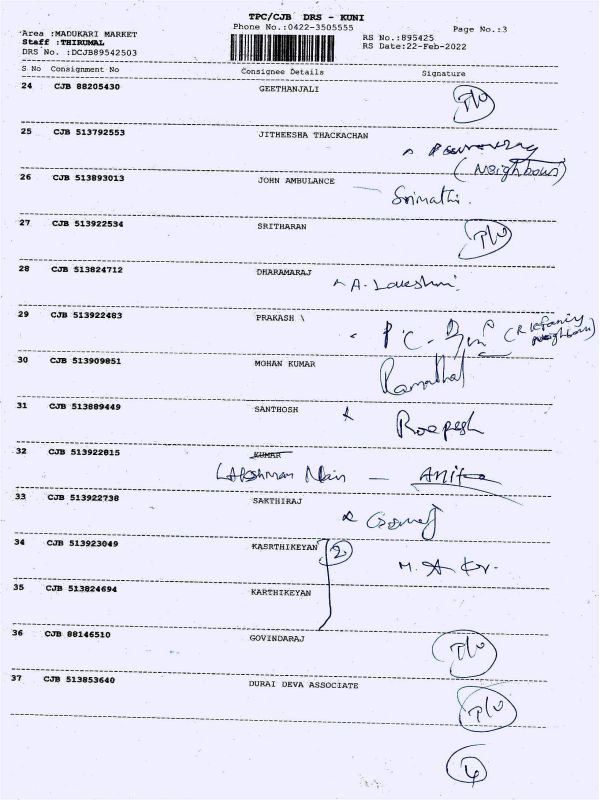 TPC/CJB DRS - KUNI
Phone No.:0422-3505555
Page No.:3
Area :MADUKARI MARKET
Staff :THIRUMAL
DRS No. :DCJB89542503
RS No.:895425
RS Date:22-Feb-2022
S No Consignment No Consignee Details Signature
24 CJB 88205430 GEETHANJALI
25 CJB 513792553 JITHEESHA THACKACHAN
(Neighbours)
26 CJB 513893013 JOHN AMBULANCE
Srimathi.
27 CJB 513922534 SRITHARAN
28 CJB 513824712 DHARAMARAJ
A. Lakshmi
29 CJB 513922483 PRAKASH \
30 CJB 513909851 MOHAN KUMAR
31 CJB 513889449 SANTHOSH
Roopesh
32 CJB 513922815 KUMAR
Lakshman Nain — Anitha
33 CJB 513922738 SAKTHIRAJ
34 CJB 513923049 KASRTHIKEYAN 2
35 CJB 513824694 KARTHIKEYAN
36 CJB 88146510 GOVINDARAJ
37 CJB 513853640 DURAI DEVA ASSOCIATE
4